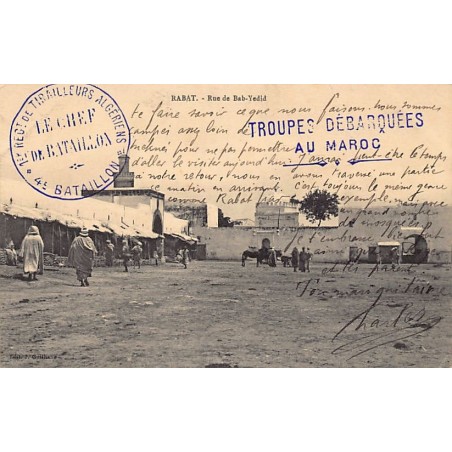 RABAT. - Rue de Bab-Yedid
1er REGt DE TIRAILLEURS ALGÉRIENS
LE CHEF
DE BATAILLON
4e BATAILLON
TROUPES DÉBARQUÉES
AU MAROC
te faire savoir ce que nous faisons. nous sommes
campés assez loin de
pour ne pas permettre
d'aller le visiter aujourd'hui J'aurai peut-être le temps
à notre retour, nous en avons traversé une partie
ce matin en arrivant. C'est toujours le même genre
comme Rabat
par exemple, mais
grand nombre
de mosquées
Je t'embrasse
et les parents.
Ton mari qui t'aime
Charles